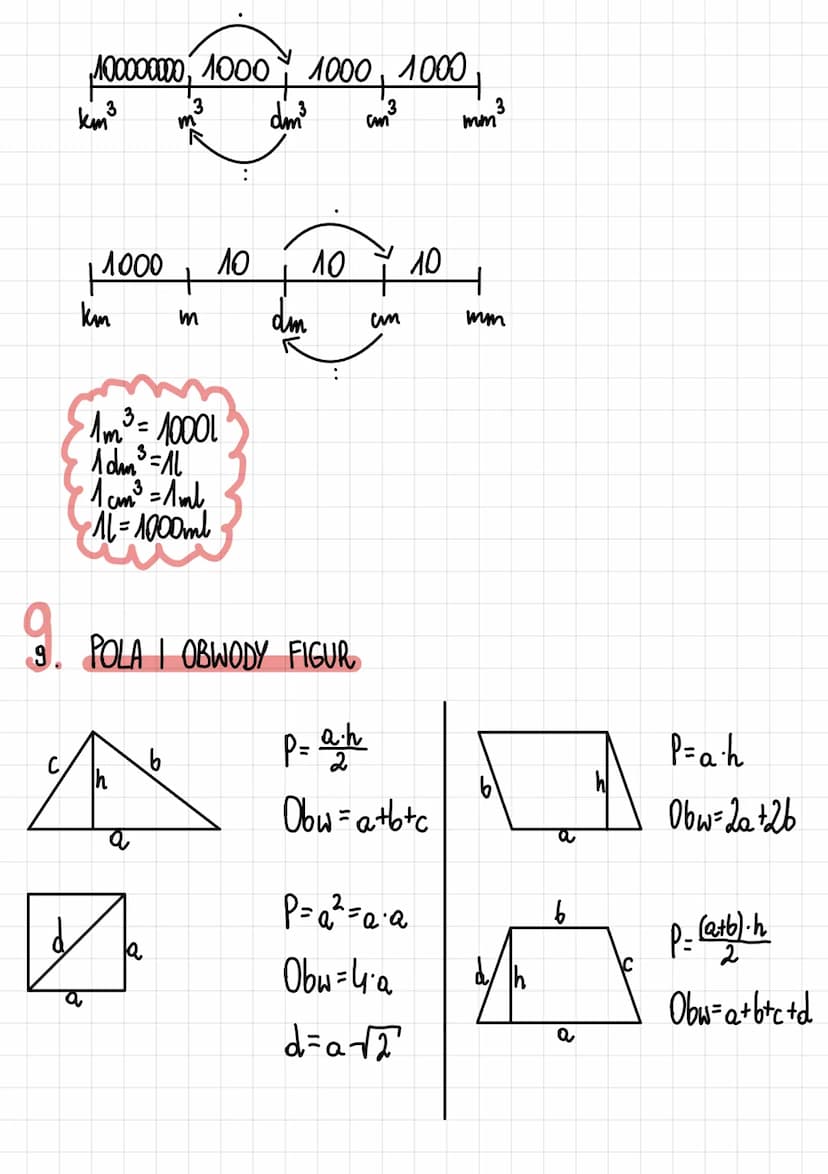 ·
1000000000 1000 1000 1000
km³ m³ dm³ cm³ mm³
:
·
1000 10 10 10
km m dm cm mm
:
1m³ = 1000l
1dm³ = 1l
1cm³ = 1ml
1l = 1000ml
9. POLA I OBWODY FIGUR
c h b
a
P = a·h/2
Obw = a+b+c
b h
a
P = a·h
Obw = 2a+2b
d a
a
P = a² = a·a
Obw = 4·a
d = a√2
b
d h c
a
P = (a+b)·h/2
Obw = a+b+c+d